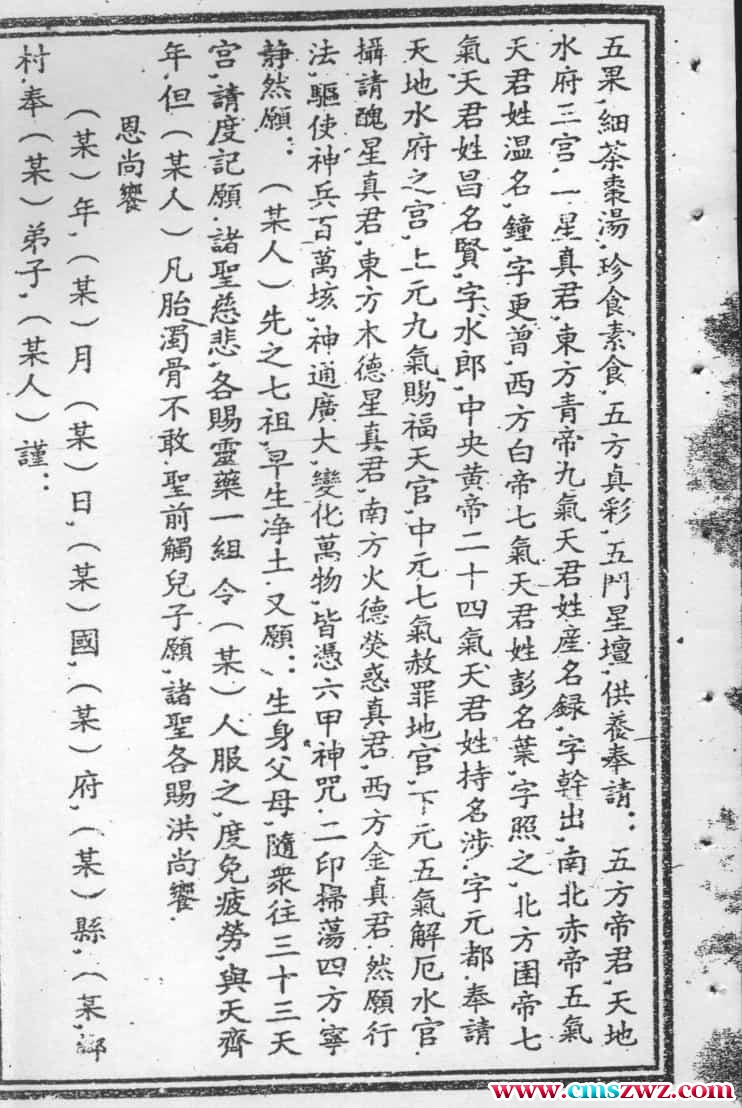 五果,細茶棗湯,珍食素食,五方真彩,五門星壇,供養奉請:五方帝君,天地
水府三宫.一星真君,東方青帝九氣天君姓産名録,字幹出,南北赤帝五氣
天君姓温名,鐘,字更曾,西方白帝七氣天君姓彭名葉,字照之,北方国帝七
氣天君姓昌名賢,字水郎,中央黄帝二十四氣天君姓持名涉.字元都.奉請
天地水府之宫,上元九氣賜福天官,中元七氣赦罪地官,下元五氣解厄水官.
攝請醜星真君,東方木德星真君,南方火德熒惑真君,西方金真君.然願行
法,驅使神兵百萬垓,神通廣大,變化萬物,皆憑六甲神咒.二印掃蕩四方.寧
静然願:(某人)先之七祖,早生净土.又願:、生身父母,隨衆往三十三天
宫,請度記願.諸聖慈悲,各賜靈藥一組 令(某)人服之,度免疲勞,與天齊
年,但(某人)凡胎濁骨不敢.聖前觸兒子願,諸聖各賜洪尚饗.
恩尚饗
(某)年,(某)月(某)日,(某)國,(某)府,(某)縣,(某,鄉
村.奉(某)弟子,(某人)謹:
www.cmszwz.com